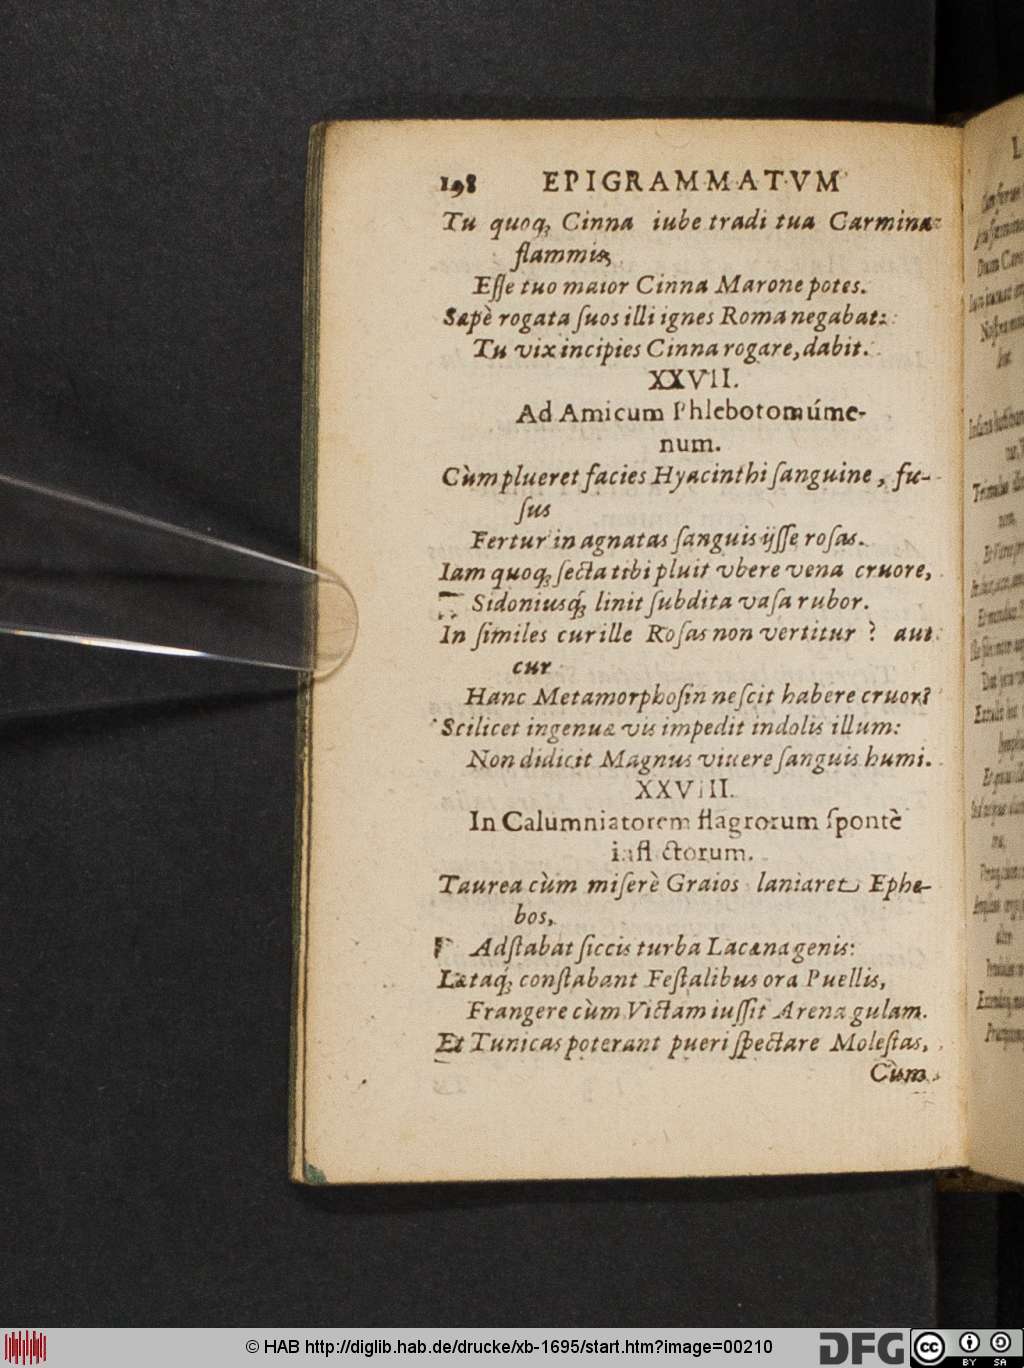 198 EPIGRAMMATVM
Tu quoq́; Cinna iube tradi tua Carmina
flammis,
Eſſe tuo maior Cinna Marone potes.
Sæpè rogata ſuos illi ignes Roma negabat:
Tu vix incipies Cinna rogare, dabit.
XXVII.
Ad Amicum Phlebotomúme-
num.
Cùm plueret facies Hyacinthi ſanguine, fu-
ſus
Fertur in agnatas ſanguis ijſſe roſas.
Iam quoq; ſecta tibi pluit vbere vena cruore,
Sidoniusq́; linit ſubdita vaſa rubor.
In ſimiles cur ille Roſas non vertitur? aut
cur
Hanc Metamorphoſin neſcit habere cruor?
Scilicet ingenuæ vis impedit indolis illum:
Non didicit Magnus viuere ſanguis humi.
XXVIII.
In Calumniatorem flagrorum ſpontè
inflictorum.
Taurea cùm miſerè Graios laniaret Ephe-
bos,
Adſtabat ſiccis turba Lacæna genis:
Lætaq́; conſtabant Feſtalibus ora Puellis,
Frangere cùm Victam iuſſit Arena gulam.
Et Tunicas poterant pueri ſpectare Moleſtas,
Cùm
© HAB http://diglib.hab.de/drucke/xb-1695/start.htm?image=00210
DFG
cc
BY SA